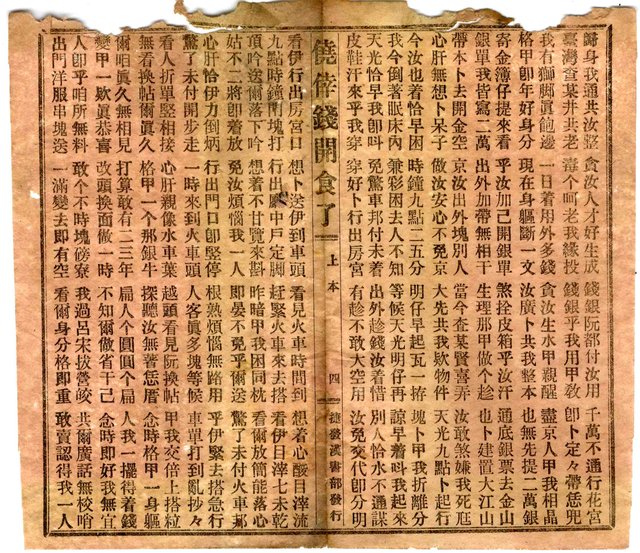 歸身我通共汝整 貪汝人才好生成 錢銀阮都付汝用 千萬不通行花宮
臺灣查某井共老 毒个呵老我緣投 錢銀乎我用甲敎 卽卜定々帶恁兜
我有獅厥眞飽邊 一日着用外多錢 貪汝生水甲親醒 盡京人甲我相晶
格甲卽年好身分 現在身軀斷一文 汝廣卜共我整本 也無先提二萬銀
寄金簿仔提來看 乎汝加己開銀單 煞拴皮箱乎汝汗 通底銀票去金山
銀單我皆寫二萬 出外加帶無相干 生理那甲做个趁 也卜建置大江山
帶本卜去開金空 京汝出外塊別人 當今查某賢喜弄 汝敢煞嫌我死旺
心肝無想卜呆子 做汝安心不免京 大先共我欺物件 天光九點卜起行
今汝也着恰早困 時鐘九點二五分 明仔早起瓦一擠 塊卜甲我折離分
我今倒著眠床內 兼彩困去人不知 等候天光明仔再 諒早着叫我起來
天光恰早我卽叫 免驚車邦付未着 出外趁錢汝着惜 別人恰水不通謀
皮鞋汗來乎我穿 穿好卜行出房宮 有趁不敢大空用 汝免交代卽分明
僥倖錢開食了 上本 四 捷發漢書部發行
看伊行出房宮口 想卜送伊到車頭 看見火車時間到 想着心酸目滓流
九點時鐘開塊打 行出廳中戶定脚 赶緊火車來去搭 看伊目滓七未乾
項吟送爾落下吟 想着不甘覽來斟 昨暗甲我困同枕 看爾放簡能落心
姑不二將卽着放 免汝煩惱我一人 卽晏不免乎爾送 驚了未付火車邦
心肝恰伊力倒炳 行出門口卽堅停 根熟煩惱無路用 乎伊緊去搭急行
驚了未付開步走 一時來到火車頭 人客眞多塊等候 車單打到亂抄々
看人折單堅相接 心肝親像水車葉 越頭看見阮換帖 甲我交倍上搭粒
無看換帖爾眞久 格甲一个那銀牛 探聽汝無著怎厝 念時格甲一身軀
爾咱眞久無相見 打算敢有二三年 扁人个圓圓个扁 人我一擺得看錢
變甲一欺眞恭喜 改頭換面做一時 不知爾做省干己 念時卽好我無宜
人卽乎咱所無料 敢个不時塊磅寮 我過呂宋拔鶯皎 共爾廣話無校哨
出門洋服串塊送 一滿變去卽有空 看爾身分格卽重 敢賣認得我一人